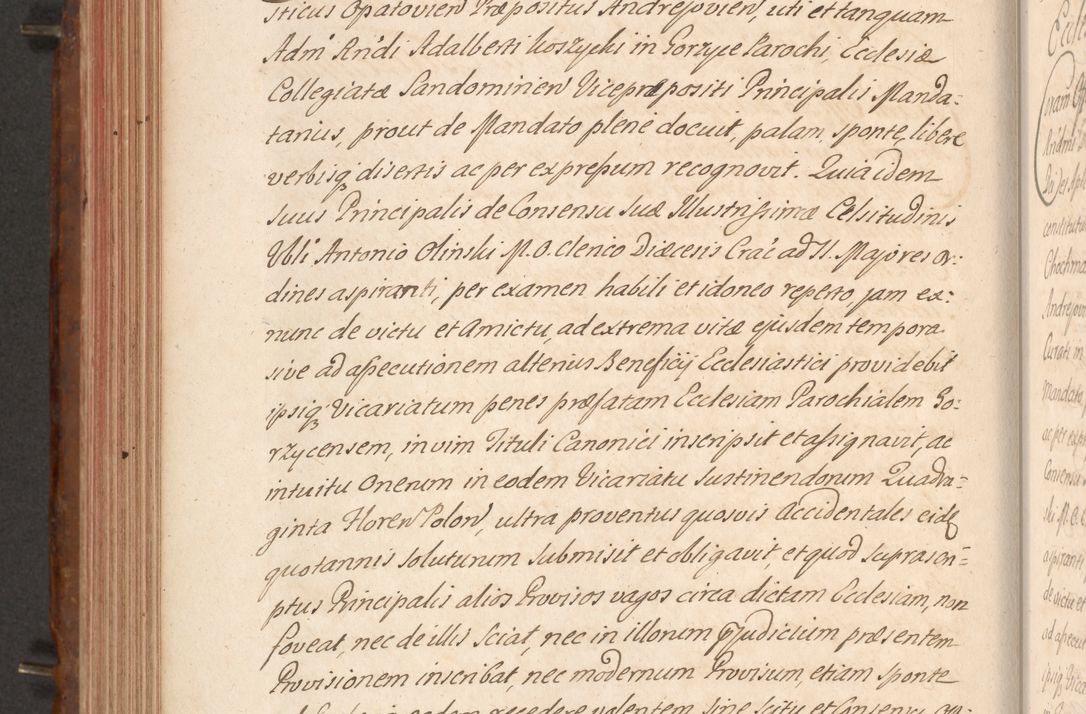 sticus Opatovien Præpositus Andrejovien, uti et tanquam
Adm Rndi Adalberti Koszycki in Gorzyce Parochi, Ecclesiæ
Collegiatæ Sandomirien Vicepræpositi Principalis Manda=
tarius, prout de Mandato plene docuit, palam, sponte, libere
verbisq disertis ac per expressum recognovit. Quia idem
suus Principalis de Consensu suæ Illustrissimæ Celsitudinis
Vbli Antonio Olinski M.O. Clerico Diæcesis Crac ad SS. Majores or:
dines aspiranti, per examen habili et idoneo reperto, jam ex:
nunc de victu et amictu, ad extrema vitæ ejusdem tempora
sive ad assecutionem alterius Beneficij Ecclesiastici providebit
ipsiq Vicariatum penes præfatam Ecclesiam Parochialem Go:
rzycensem, in vim Tituli Canonici inscripsit et assignavit, ac
intuitu onerum in eodem Vicariatu sustinendorum Quadra=
ginta Floren Polon, ultra proventus quosvis accidentales eid
quotannis soluturum submisit et obligavit, et quod suprascri=
ptus Principalis alios Provisos vagos circa dictam Ecclesiam, non
foveat, nec de illis sciat, nec in illorum pjudicium præsentem
Provisionem inscribat, nec modernum Provisum, etiam sponte
recedere valentem sine scitu et Consensu
Eccle
constitutu
Andrejov
Curati in
Mandato
ac per exp
Consensu
ski M.O.
aspiranti
de victu et
ad assecut
ipsiq Vica